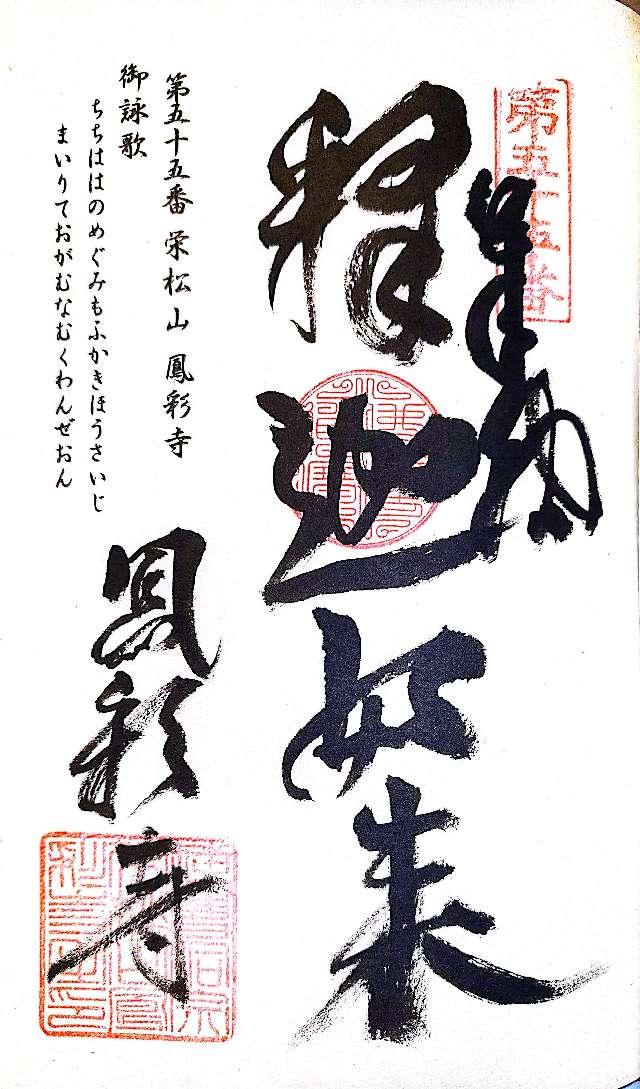 第五十五番
奉拝
釋迦如来
鳳彩寺
第五十五番 栄松山 鳳彩寺
御詠歌
ちちははのめぐみもふかきほうさいじ
まいりておがむなむくわんぜおん